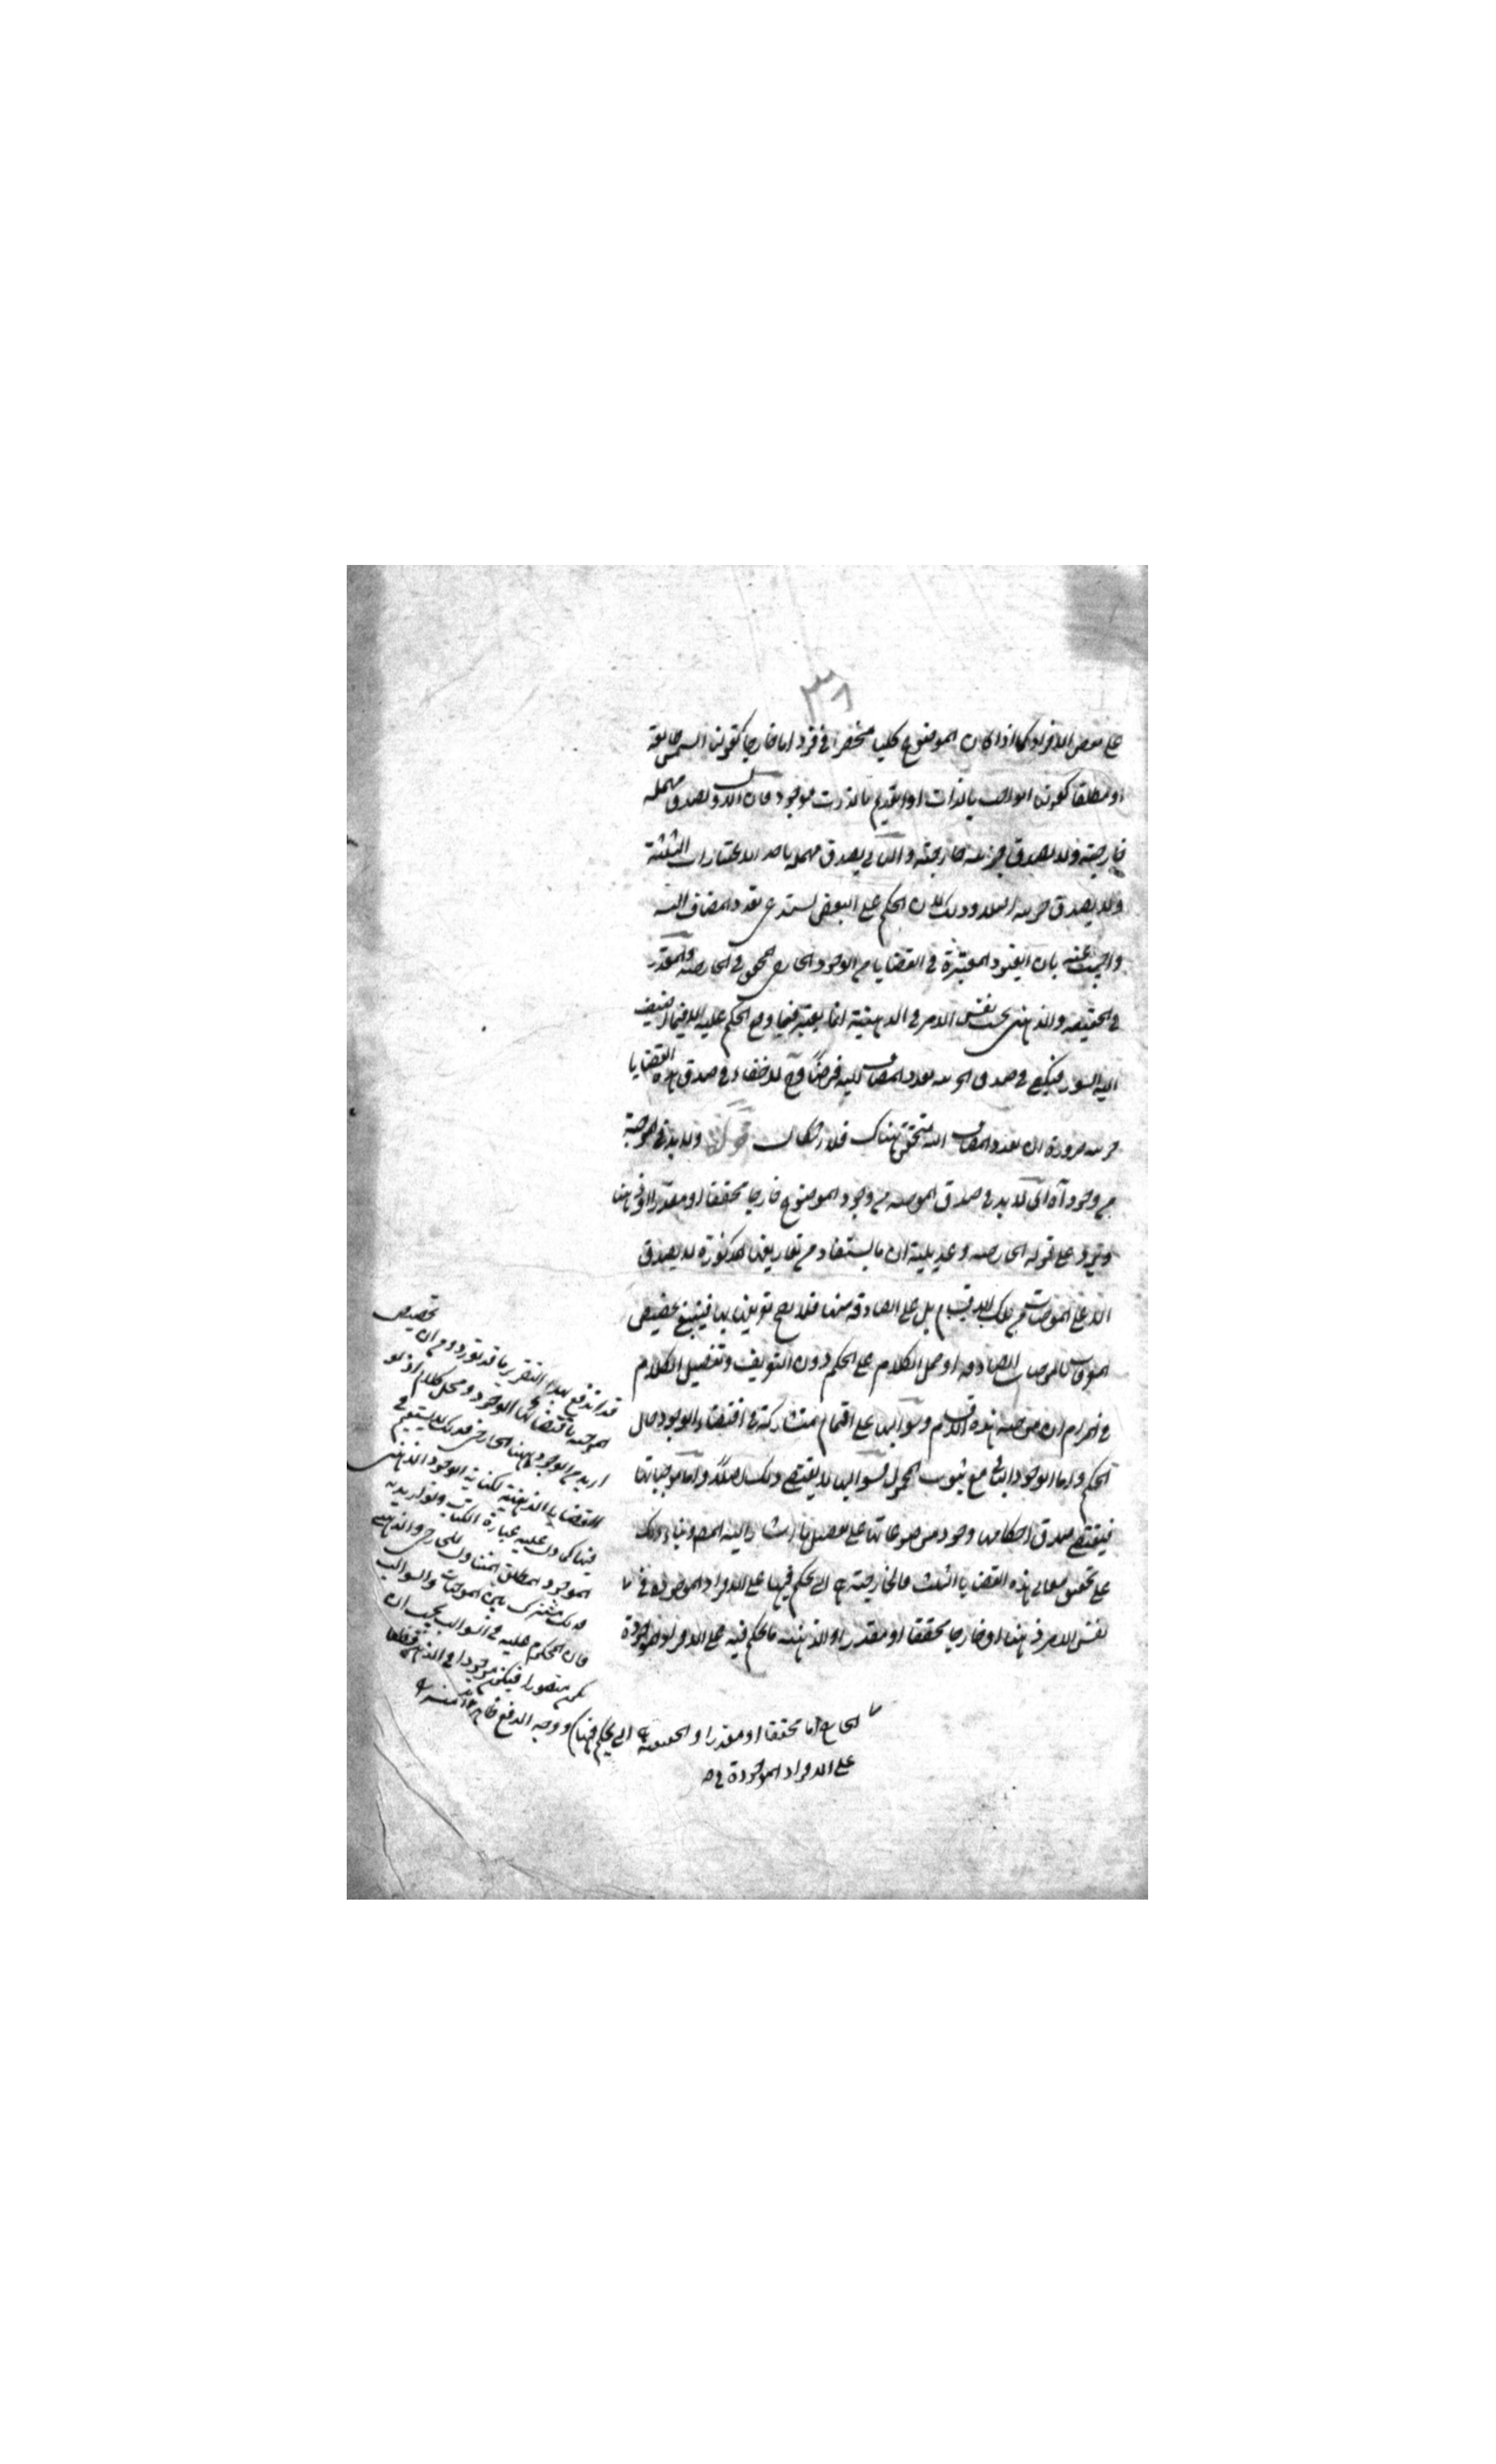 ٣٨
على بعض الافراد كما اذا كان الموضوع كليا منحصرا في فرد اما خارجا كقولنا الشمس
او مطلقا كقولنا الواجب بالذات او القديم بالذات موجود فان الاول يصدق مهملة
خارجية ولا يصدق جزئية خارجية والثاني يصدق مهملة باحد الاعتبارات الثلثة
ولا يصدق جزئية وذلك لان الحكم على البعض يستدعي تعدد المضاف اليه
واجيب عنه بان القيود المعتبرة في القضايا من الوجود الخارجي المحقق في الخارجية والمقدر
في الحقيقية والذهني بحسب نفس الامر في الذهنية انما يعتبر فيما وقع الحكم عليه لا فيما اضيف
اليه السور فيكفي في صدق الجزئية تعدد المضاف اليه فرضا وح لا خفاء في صدق هذه القضايا
جزئية ضرورة ان تعدد المضاف اليه متحقق هناك فلا اشكال قوله ولا بد في الموجبة
من وجود آه اي لا بد في صدق الموجبة من وجود الموضوع خارجا محققا او مقدرا او ذهنا
ويرد على قوله الخارجية وعديليه ان ما يستفاد من تعاريفها المذكورة لا يصدق
الا على الموجبات من تلك الاقسام بل على الصادقة منها فلا يصح تعريفها بها فينبغي تخصيص
المعرفات بالموجبات الصادقة او حمل الكلام على الحكم دون التعريف وتفصيل الكلام
في المرام ان موجبة هذه الاقسام وسوالبها على اقسام متشاركة في اقتضاء الوجود حال
الحكم واما الوجود الباقي مع ثبوت المحمول فسوالبها لا يقتضي ذلك اصلا واما موجباتها
فيقتضي صدق احكامها وجود موضوعاتها على تفصيل اشار اليه المص وبناء ذلك
على تحقيق معاني هذه القضايا الثلث فالخارجية هي التي يحكم فيها على الافراد الموجودة في
نفس الامر ذهنا او خارجا محققا او مقدرا والذهنية ما يحكم فيه على الافراد الموجودة
الخارج اما محققا او مقدرا والحقيقية هي التي يحكم فيها
على الافراد الموجودة في
قد اندفع بهذا التقرير ما قد يورد من ان تخصيص
الموجبة باقتضائها الوجود محل كلام اذ لو
اريد من الوجود ههنا الخارجي فذلك لا يستقيم في
القضايا الذهنية لكفاية الوجود الذهني
فيها كما دل عليه عبارة الكتاب ولو اريد به
الموجود المطلق المتناول للخارجي والذهني
فذلك مشترك بين الموجبات والسوالب
فان المحكوم عليه في السوالب يجب ان
يكون متصورا فيكون موجودا في الذهن قطعا
ووجه الدفع ظاهر منه